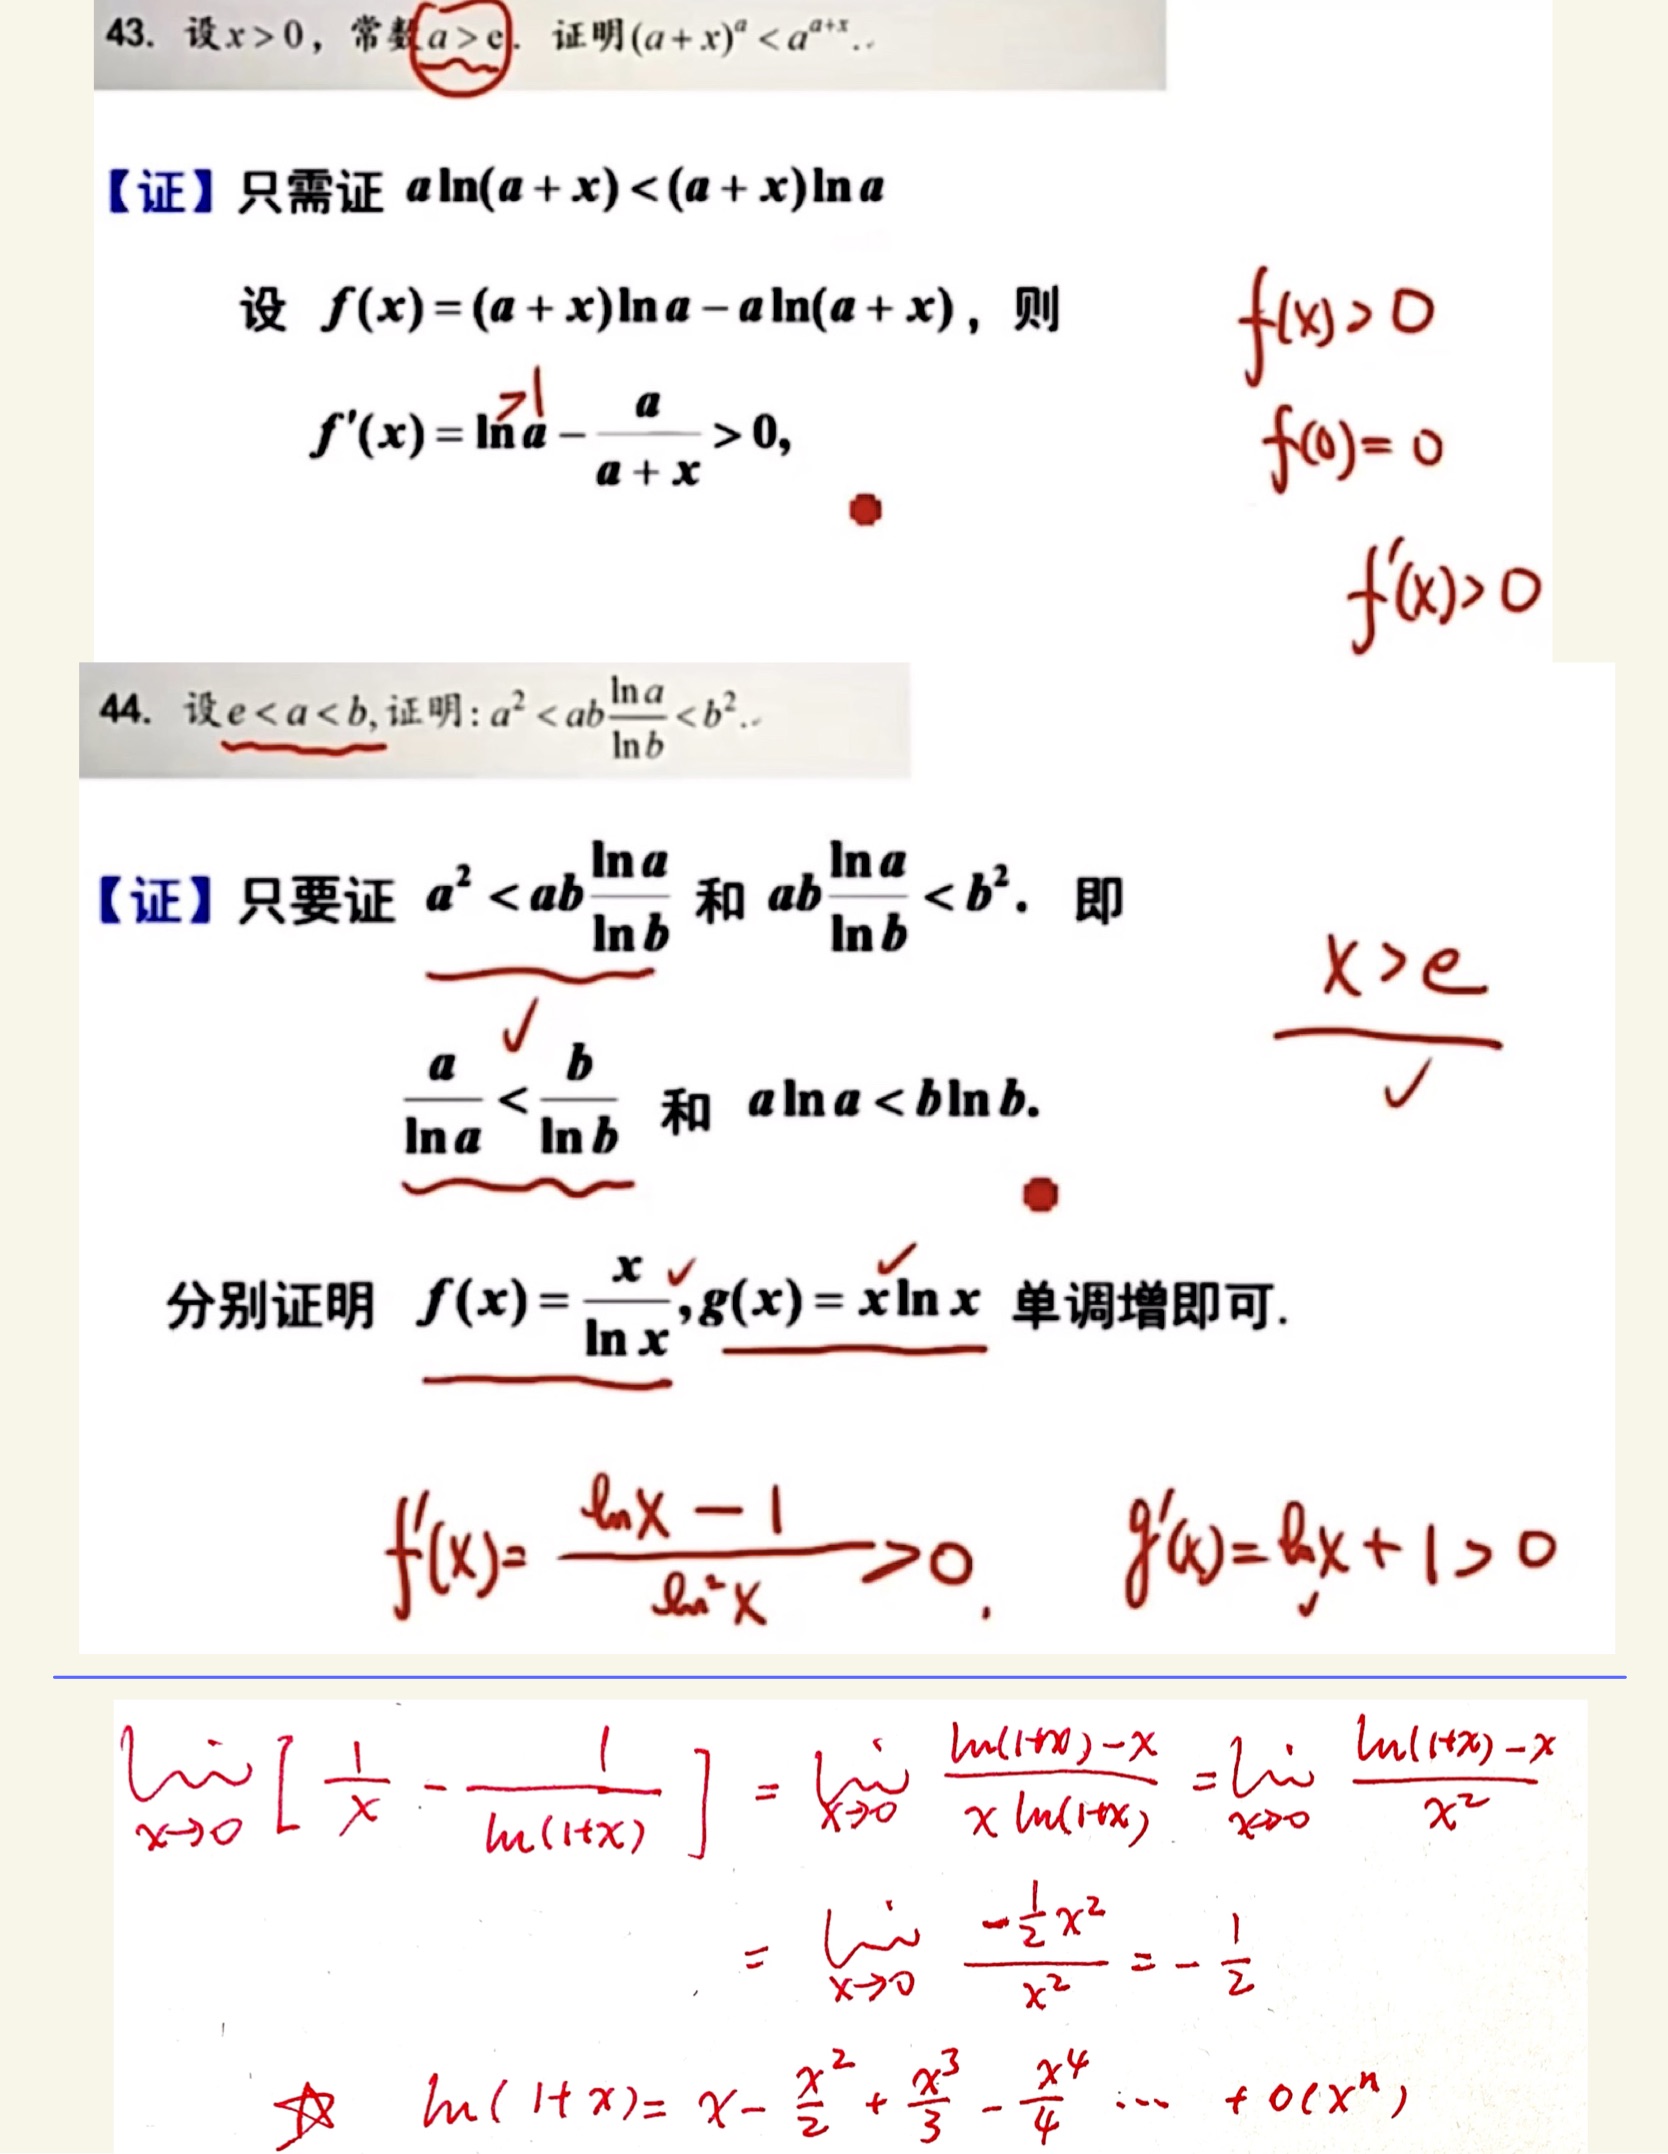 43. 设x>0，常数a>e. 证明(a+x)^a<a^{a+x}..
【证】只需证 a ln(a+x)<(a+x)ln a
设 f(x)=(a+x)ln a−a ln(a+x)，则
f(x)>0
>1
f'(x)=ln a−\frac{a}{a+x}>0,
f(0)=0
f'(x)>0
44. 设e<a<b,证明:a²<ab\frac{ln a}{ln b}<b²..
【证】只要证 a²<ab\frac{ln a}{ln b} 和 ab\frac{ln a}{ln b}<b². 即
x>e
✓
✓
\frac{a}{ln a}<\frac{b}{ln b} 和 a ln a<b ln b.
✓ ✓
分别证明 f(x)=\frac{x}{ln x},g(x)=x ln x 单调增即可.
f'(x)=\frac{lnx−1}{ln²x}>0. g'(x)=lnx+1>0
✓
\lim_{x→0}[\frac{1}{x}-\frac{1}{ln(1+x)}]=\lim_{x→0}\frac{ln(1+x)-x}{x ln(1+x)}=\lim_{x→0}\frac{ln(1+x)-x}{x²}
=\lim_{x→0}\frac{-\frac{1}{2}x²}{x²}=-\frac{1}{2}
☆ ln(1+x)=x-\frac{x²}{2}+\frac{x³}{3}-\frac{x⁴}{4}...+o(xⁿ)